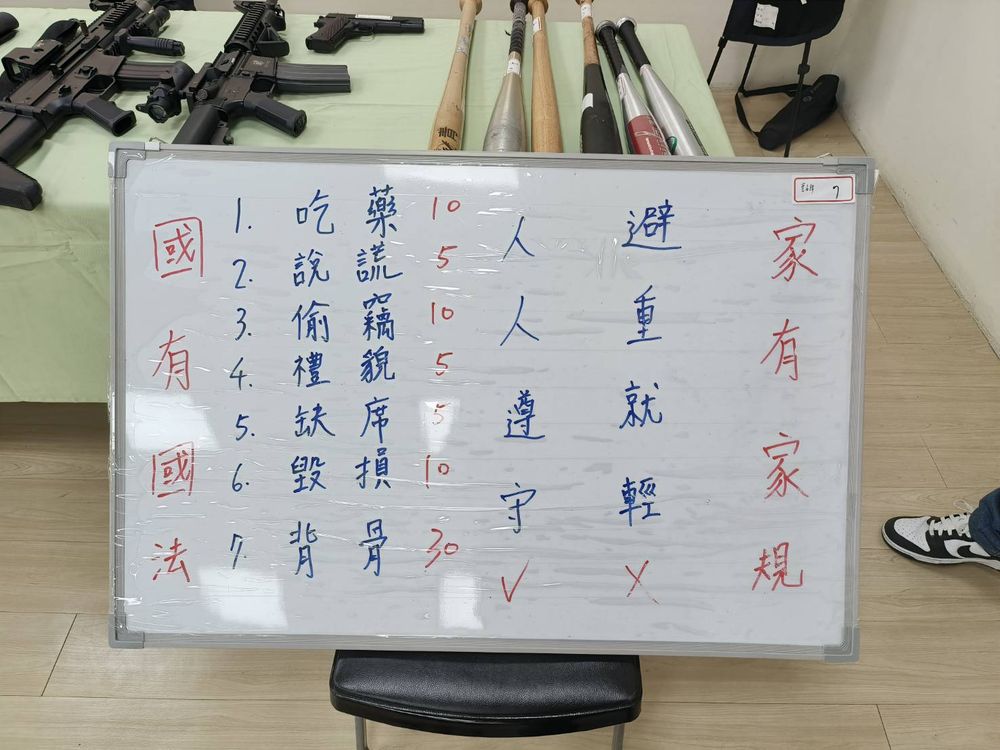 家有家規
避重就輕 X
人人遵守 V
國有國法
1. 吃藥 10
2. 說謊 5
3. 偷竊 10
4. 禮貌 5
5. 缺席 5
6. 毀損 10
7. 背骨 30
7